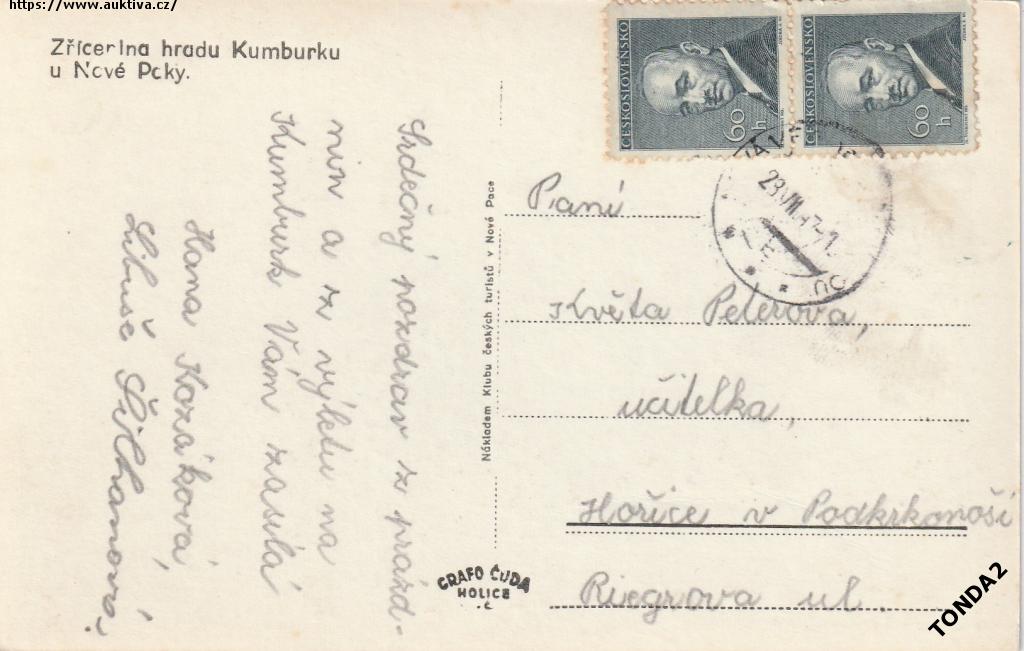 https://www.auktiva.cz/
Zřícenina hradu Kumburku
u Nové Paky.
Srdečný pozdrav z prázd-
nin a z výletu na
Kumburk Vám zasílá
Hana Kozáková,
Libuše
Nákladem Klubu českých turistů v Nové Pace
GRAFO ČUDA
HOLICE
Č
ČESKOSLOVENSKO
60
h
ČESKOSLOVENSKO
60
h
Paní
Květa Peterova,
učitelka,
Hořice v Podkrkonoší
Riegrova ul.
TONDA2